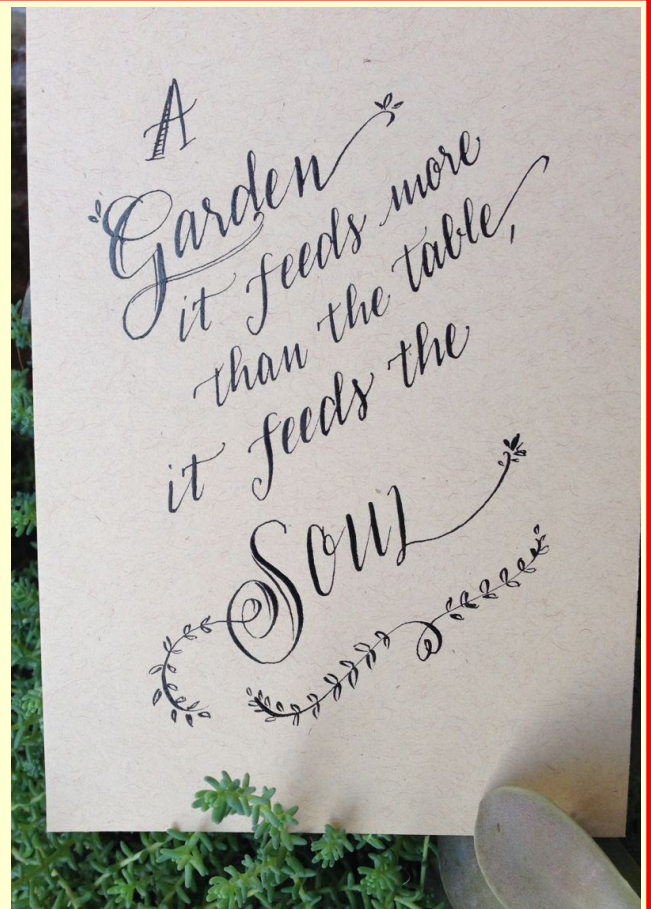 A
Garden
it feeds more
than the table,
it feeds the
Soul